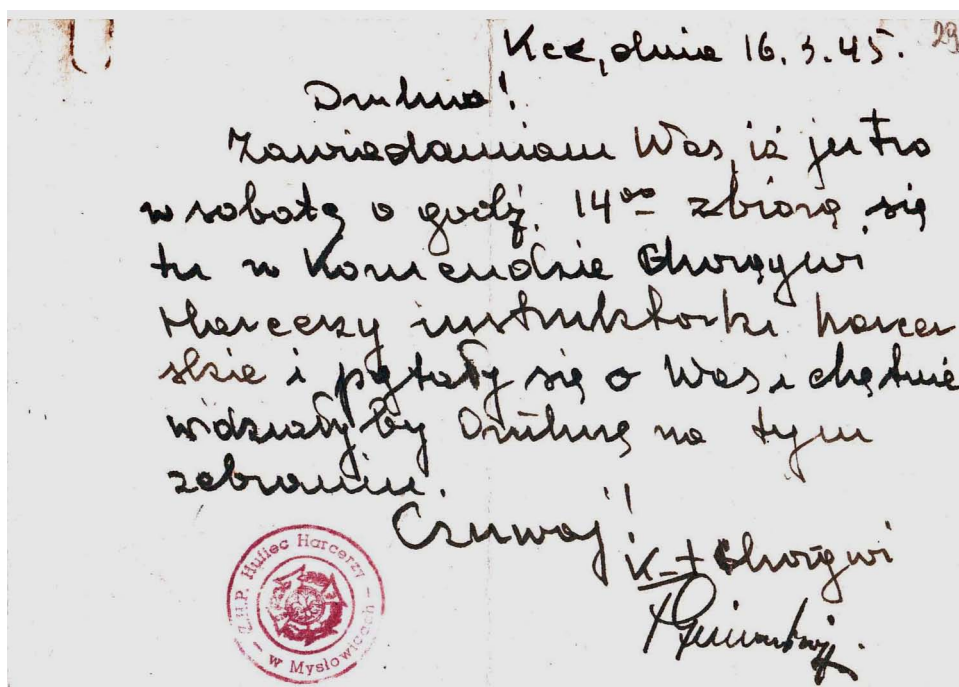 29
Kce, dnia 16. 3. 45.
Druhno!
Zawiadamiam Was, iż jutro
w sobotę o godz. 14⁰⁰ zbiorą się
tu w Komendzie Chorągwi
Harcerzy instruktorki harcer
skie i pytały się o Was i chętnie
widziały by Druhnę na tym
zebraniu.
Czuwaj!
K-t Chorągwi
Z.H.P. Hufiec Harcerzy
w Mysłowicach